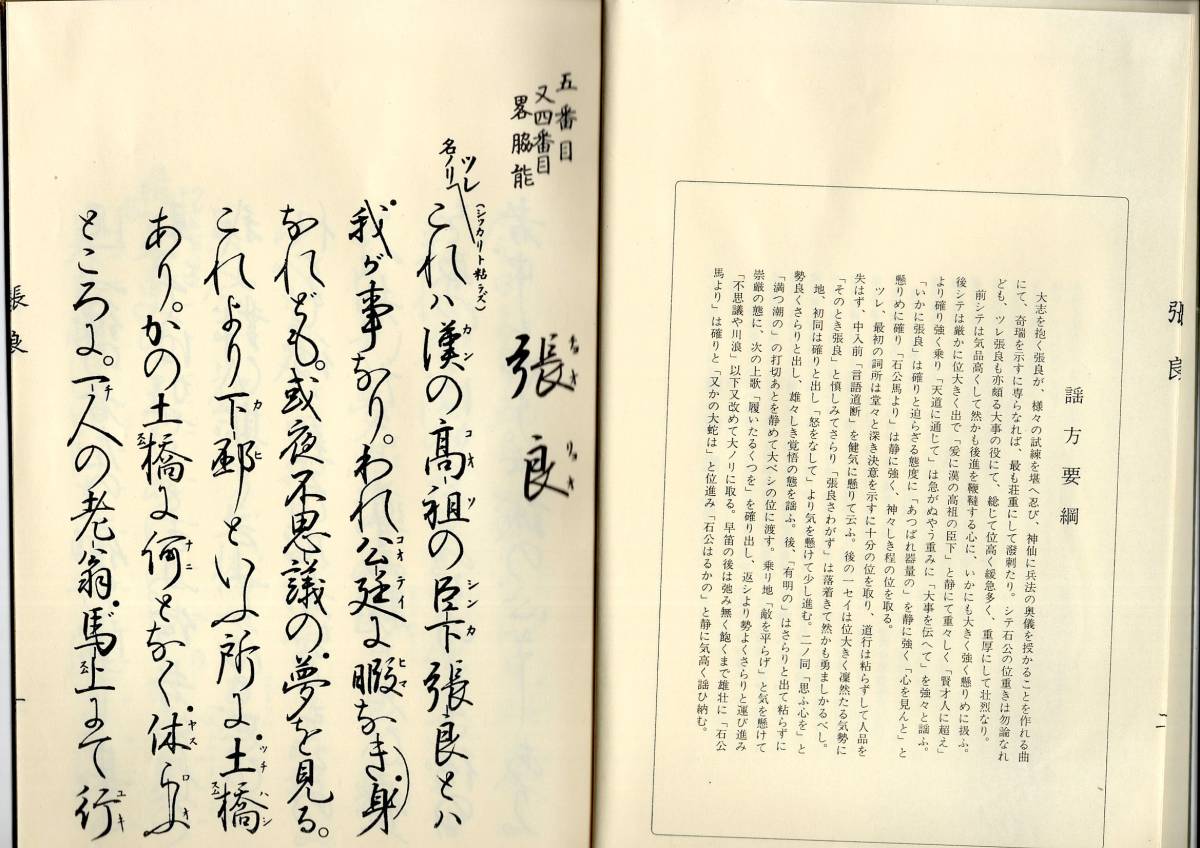 張良
二
謡方要綱
大志を抱く張良が、様々の試練を堪へ忍び、神仙に兵法の奥儀を授かることを作れる曲
にて、奇瑞を示すに専らなれば、最も荘重にして溌剌たり。シテ石公の位重きは勿論なれ
ども、ツレ張良も亦頗る大事の役にて、総じて位高く緩急多く、重厚にして壮烈なり。
前シテは気品高くして然かも後進を鞭韃する心に、いかにも大きく強く懸りめに扱ふ。
後シテは厳かに位大きく出で「爰に漢の高祖の臣下」と静にて重々しく「賢才人に超え」
より確り強く乗り「天道に通じて」は急がぬやう重みに「大事を伝へて」を強々と謡ふ。
「いかに張良」は確りと迫らざる態度に「あつぱれ器量の」を静に強く「心を見んと」と
懸りめに確り「石公馬より」は静に強く、神々しき程の位を取る。
ツレ、最初の詞所は堂々と深き決意を示すに十分の位を取り、道行は粘らずして人品を
失はず、中入前「言語道断」を健気に懸りて云ふ。後の一セイは位大きく凜然たる気勢に
「そのとき張良」と慎しみてさらり「張良さわがず」は落着きて然かも勇ましかるべし。
地、初同は確りと出し「怒をなして」より気を懸けて少し進む。二ノ同「思ふ心を」と
勢良くさらりと出し、雄々しき覚悟の態を謡ふ。後、「有明の」はさらりと出て粘らずに
「満つ潮の」の打切あとを静めて大ベシの位に渡す。乗り地「敵を平らげ」と気を懸けて
崇厳の態に、次の上歌「履いたるくつを」を確り出し、返シより勢よくさらりと運び進み
「不思議や川浪」以下又改めて大ノリに取る。早笛の後は弛み無く飽くまで雄壮に「石公
馬より」は確りと「又かの大蛇は」と位進み「石公はるかの」と静に気高く謡ひ納む。
五番目
又四番目
畧脇能
張良
チョオ リョオ
ツレ
名ノリ
(シッカリト粘ラズ)
これハ漢の高祖の臣下張良とハ
我が事なり。われ公廷に暇なき身
なれども。或夜不思議の夢を見る。
これより下邳といふ所に土橋
あり。かの土橋に何となく休らふ
ところに。一人の老翁馬上にて行
張良
一